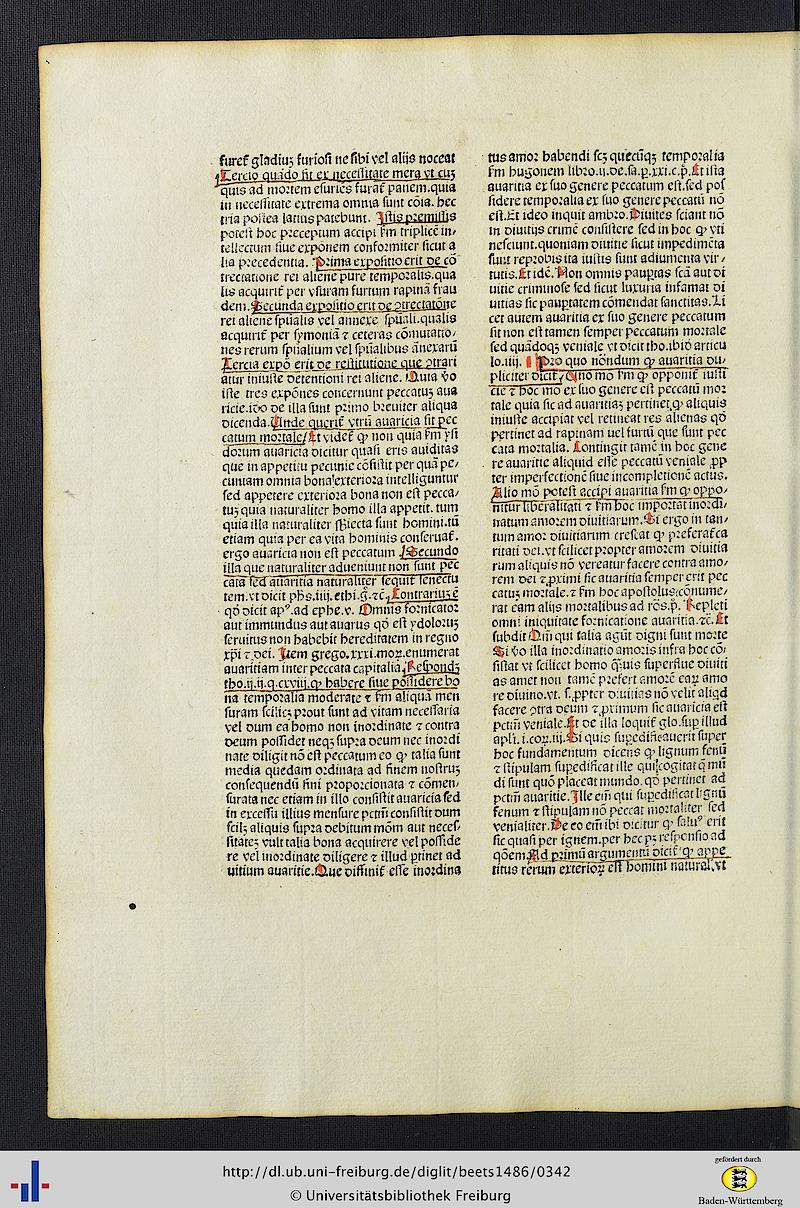 furet̄ gladiuꝫ furiosi ne sibi vel alijs noceat
Tercio quādo fit ex necessitate mera vt cuꝫ
quis ad mortem esuriēs furat̄ panem.quia
in necessitate extrema omnia sunt cōia. hec
tria postea latius patebunt. Istis premissis
potest hoc preceptum accipi ẜm triplicē in⸗
tellectum siue exponem conformiter sicut a
lia precedentia. Prima expositio erit de cō
trectatione rei aliene pure temporalis.qua
lis acquirit̄ per vsuram furtum rapinā frau
dem. Secunda expositio erit de ꝯtrectatōne
rei aliene spūalis vel annexe spūali.qualis
acquirit̄ per symoniā ⁊ ceteras cōmutatio⸗
nes rerum spūalium vel spūalibus ānexarū
Tercia expō erit de restitutione que ꝯtrari
atur iniuste detentioni rei aliene. Quia ꝟo
iste tres expōnes concernunt peccatuꝫ aua
ricie.iō de illa sunt primo breuiter aliqua
dicenda. Unde querit̄ vtrū auaricia sit pec
catum mortale/ Et videt̄ ꝙ non quia ẜm ysi
dorum auaricia dicitur quasi eris auiditas
que in appetitu pecunie cōsistit per quā pe⸗
cuniam omnia bona exteriora intelliguntur
sed appetere exteriora bona non est pecca⸗
tuꝫ quia naturaliter homo illa appetit. tum
quia illa naturaliter sbiecta sunt homini.tū
etiam quia per ea vita hominis conseruat̄.
ergo auaricia non est peccatum. Secundo
illa que naturaliter adueniunt non sunt pec
cata sed auaritia naturaliter sequit̄ senectu
tem.vt dicit ph̄s.iiij.ethi.g.⁊c̄. Contrariuꝫ ē
qd̄ dicit apꝰ.ad ephe.v. Omnis fornicator
aut immundus aut auarus qd̄ est ydoloruꝫ
seruitus non habebit hereditatem in regno
xp̄i ⁊ dei. Item grego.xxxi.moꝝ.enumerat
auaritiam inter peccata capitalia. Respondꝫ
tho.ij.ij.q.cxviij.ꝙ habere siue possidere bo
na temporalia moderate ⁊ ẜm aliquā men
suram scilicꝫ prout sunt ad vitam necessaria
vel dum ea homo non inordinate ⁊ contra
deum possidet neqꝫ supra deum nec inordi
nate diligit nō est peccatum eo ꝙ talia sunt
media quedam ordinata ad finem nostruꝫ
consequendū fini proporcionata ⁊ cōmen⸗
surata nec etiam in illo consistit auaricia sed
in excessu illius mensure pctm̄ consistit dum
scilꝫ aliquis supra debitum mōm aut neces⸗
sitateꝫ vult talia bona acquirere vel posside
re vel inordinate diligere ⁊ illud ꝑtinet ad
uitium auaritie. Que diffinit̄ esse inordina
tus amor habendi scꝫ quecūqꝫ temporalia
ẜm hugonem libro.ij.de.sa.p.xxi.c.p̄. Et ista
auaritia ex suo genere peccatum est.sed pos
sidere temporalia ex suo genere peccatū nō
est. Et ideo inquit ambro. Diuites sciant nō
in diuitijs crimē consistere sed in hoc ꝙ vti
nesciunt.quoniam diuitie sicut impedimēta
sunt reprobis ita iustis sunt adiumenta vir⸗
tutis. Et idē. Non omnis pauꝑtas scā aut di
uitie criminose sed sicut luxuria infamat di
uitias sic pauꝑtatem cōmendat sanctitas. Li
cet autem auaritia ex suo genere peccatum
sit non est tamen semper peccatum mortale
sed quādoqꝫ veniale vt dicit tho.ibid̄ articu
lo.iiij. Pro quo nōndum ꝙ auaritia du⸗
pliciter dicit̄/ Uno mō ẜm ꝙ opponit̄ iusti
cie ⁊ hoc mō ex suo genere est peccatū mor
tale quia sic ad auaritiaꝫ pertinet ꝙ aliquis
iniuste accipiat vel retineat res alienas qd̄
pertinet ad rapinam uel furtū que sunt pec
cata mortalia. Contingit tamē in hoc gene
re auaritie aliquid esse peccatū veniale ꝓp
ter imperfectionē siue incompletionē actus.
Alio mō potest accipi auaritia ẜm ꝙ oppo⸗
nitur liberalitati ⁊ ẜm hoc importat inordi⸗
natum amorem diuitiarum. Si ergo in tan⸗
tum amor diuitiarum crescat ꝙ preferat̄ca
ritati dei.vt scilicet propter amorem diuitia
rum aliquis nō vereatur facere contra amo⸗
rem dei ⁊ ꝓximi sic auaritia semper erit pec
catuꝫ mortale.⁊ ẜm hoc apostolus cōnume⸗
rat eam alijs mortalibus ad rōs.p̄. Repleti
omni iniquitate fornicatione auaritia.⁊c̄. Et
subdit Qm̄ qui talia agūt digni sunt morte
Si ꝟo illa inordinatio amoris infra hoc cō⸗
sistat vt scilicet homo q̄uis superflue diuiti
as amet non tamē prefert amorē eaꝝ amo
re diuino.vt. s.ꝓpter diuitias nō velit aliqd
facere ꝯtra deum ⁊ ꝓximum sic auaricia est
pctm̄ veniale. Et de illa loquit̄ glo.sup illud
apl̄i.i.coꝝ.iij. Si quis suꝑedificauerit super
hoc fundamentum dicens ꝙ lignum fenū
⁊ stipulam suꝑedificat ille qui cogitat q̄ mū
di sunt quō placeat mundo. qd̄ pertinet ad
pctm̄ auaritie. Ille em̄ qui suꝑedificat lignū
fenum ⁊ stipulam nō peccat mortaliter sed
venialiter. De eo em̄ ibi dicitur ꝙ saluꝰ erit
sic quasi per ignem.per hec pꝫ responsio ad
qōem. Ad primū argumentū dicit̄ ꝙ appe
titus rerum exterioꝝ est homini natural.vt
http://dl.ub.uni-freiburg.de/diglit/beets1486/0342
© Universitätsbibliothek Freiburg
gefördert durch
Baden-Württemberg